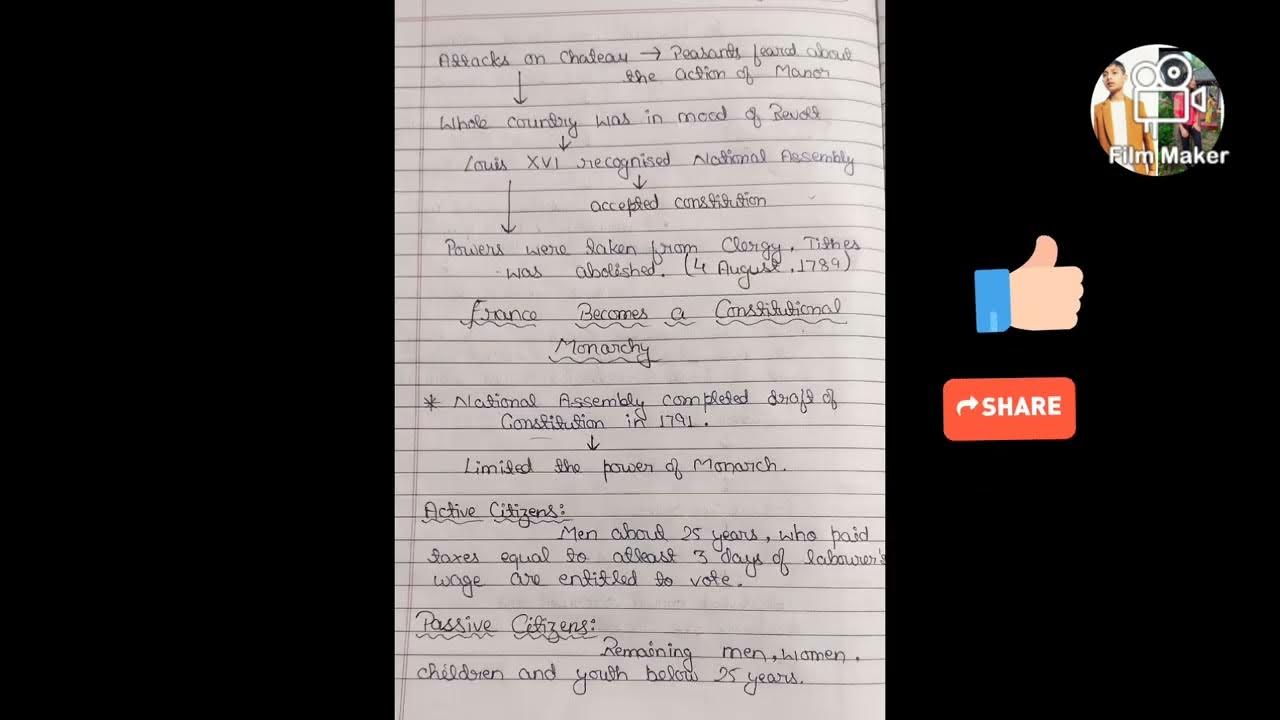 Attacks on Chateau → Peasants feard about
the action of Manor
↓
Whole country was in mood of Revolt
↓
Louis XVI recognised National Assembly
↓ ↓
accepted constitution
Powers were taken from Clergy, Tithes
was abolished. (4 August, 1789)
France Becomes a Constitutional
Monarchy
* National Assembly completed draft of
Constitution in 1791.
↓
Limited the power of Monarch.
Active Citizens:
Men about 25 years, who paid
taxes equal to atleast 3 days of labourer's
wage are entitled to vote.
Passive Citizens:
Remaining men, women,
children and youth below 25 years.
Film Maker
SHARE